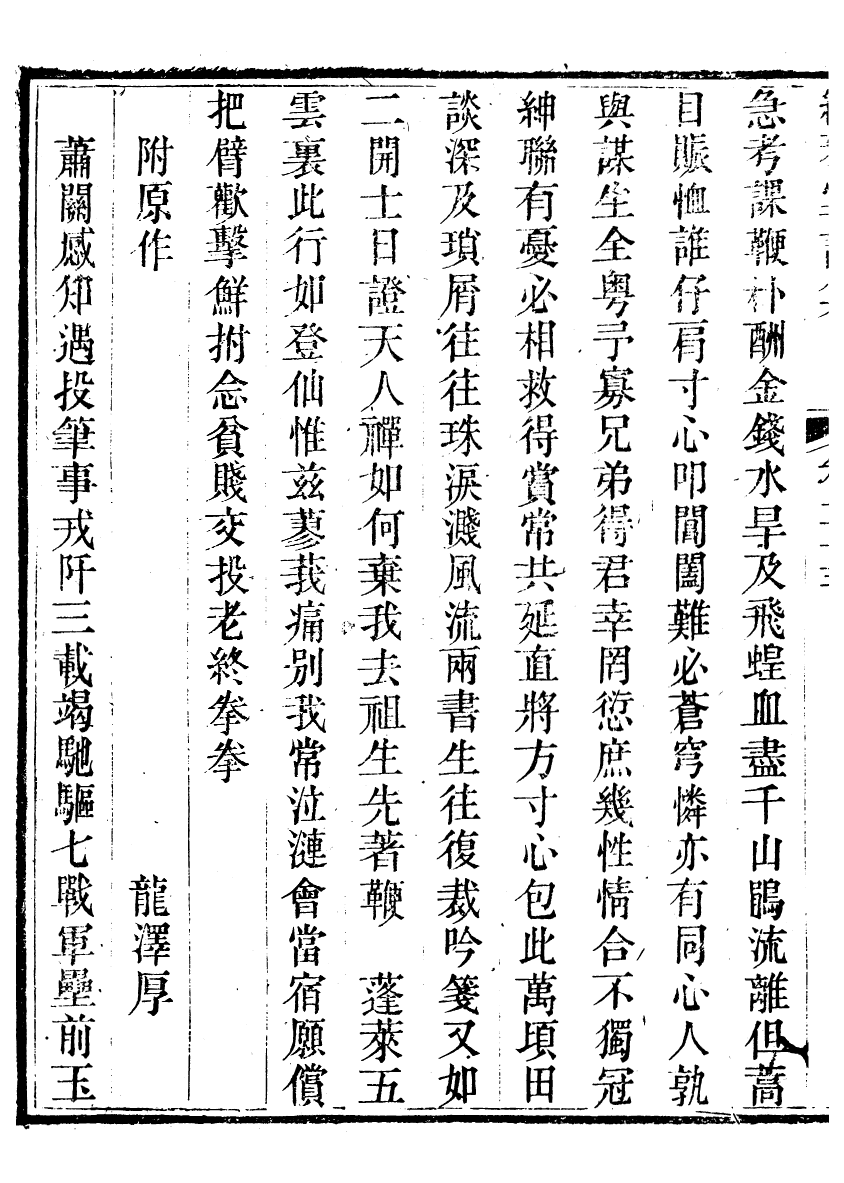 急考課鞭朴酬金錢水旱及飛蝗血盡千山鵑流離但蒿
目賑恤誰仔肩寸心叩閶闔難必蒼穹憐亦有同心人孰
與謀生全粵予寡兄弟得君幸罔愆庶幾性情合不獨冠
紳聯有憂必相救得賞常共延直將方寸心包此萬頃田
談深及瑣屑往往珠淚濺風流兩書生往復裁吟箋又如
二開士日證天人禪如何棄我去祖生先著鞭　蓬萊五
雲裏此行如登仙惟茲蓼莪痛別我常泣漣會當宿願償
把臂歡擊鮮拊念貧賤交投老終拳拳
附原作　龍澤厚
蕭關感知遇投筆事戎阡三載竭馳驅七戰軍壘前玉